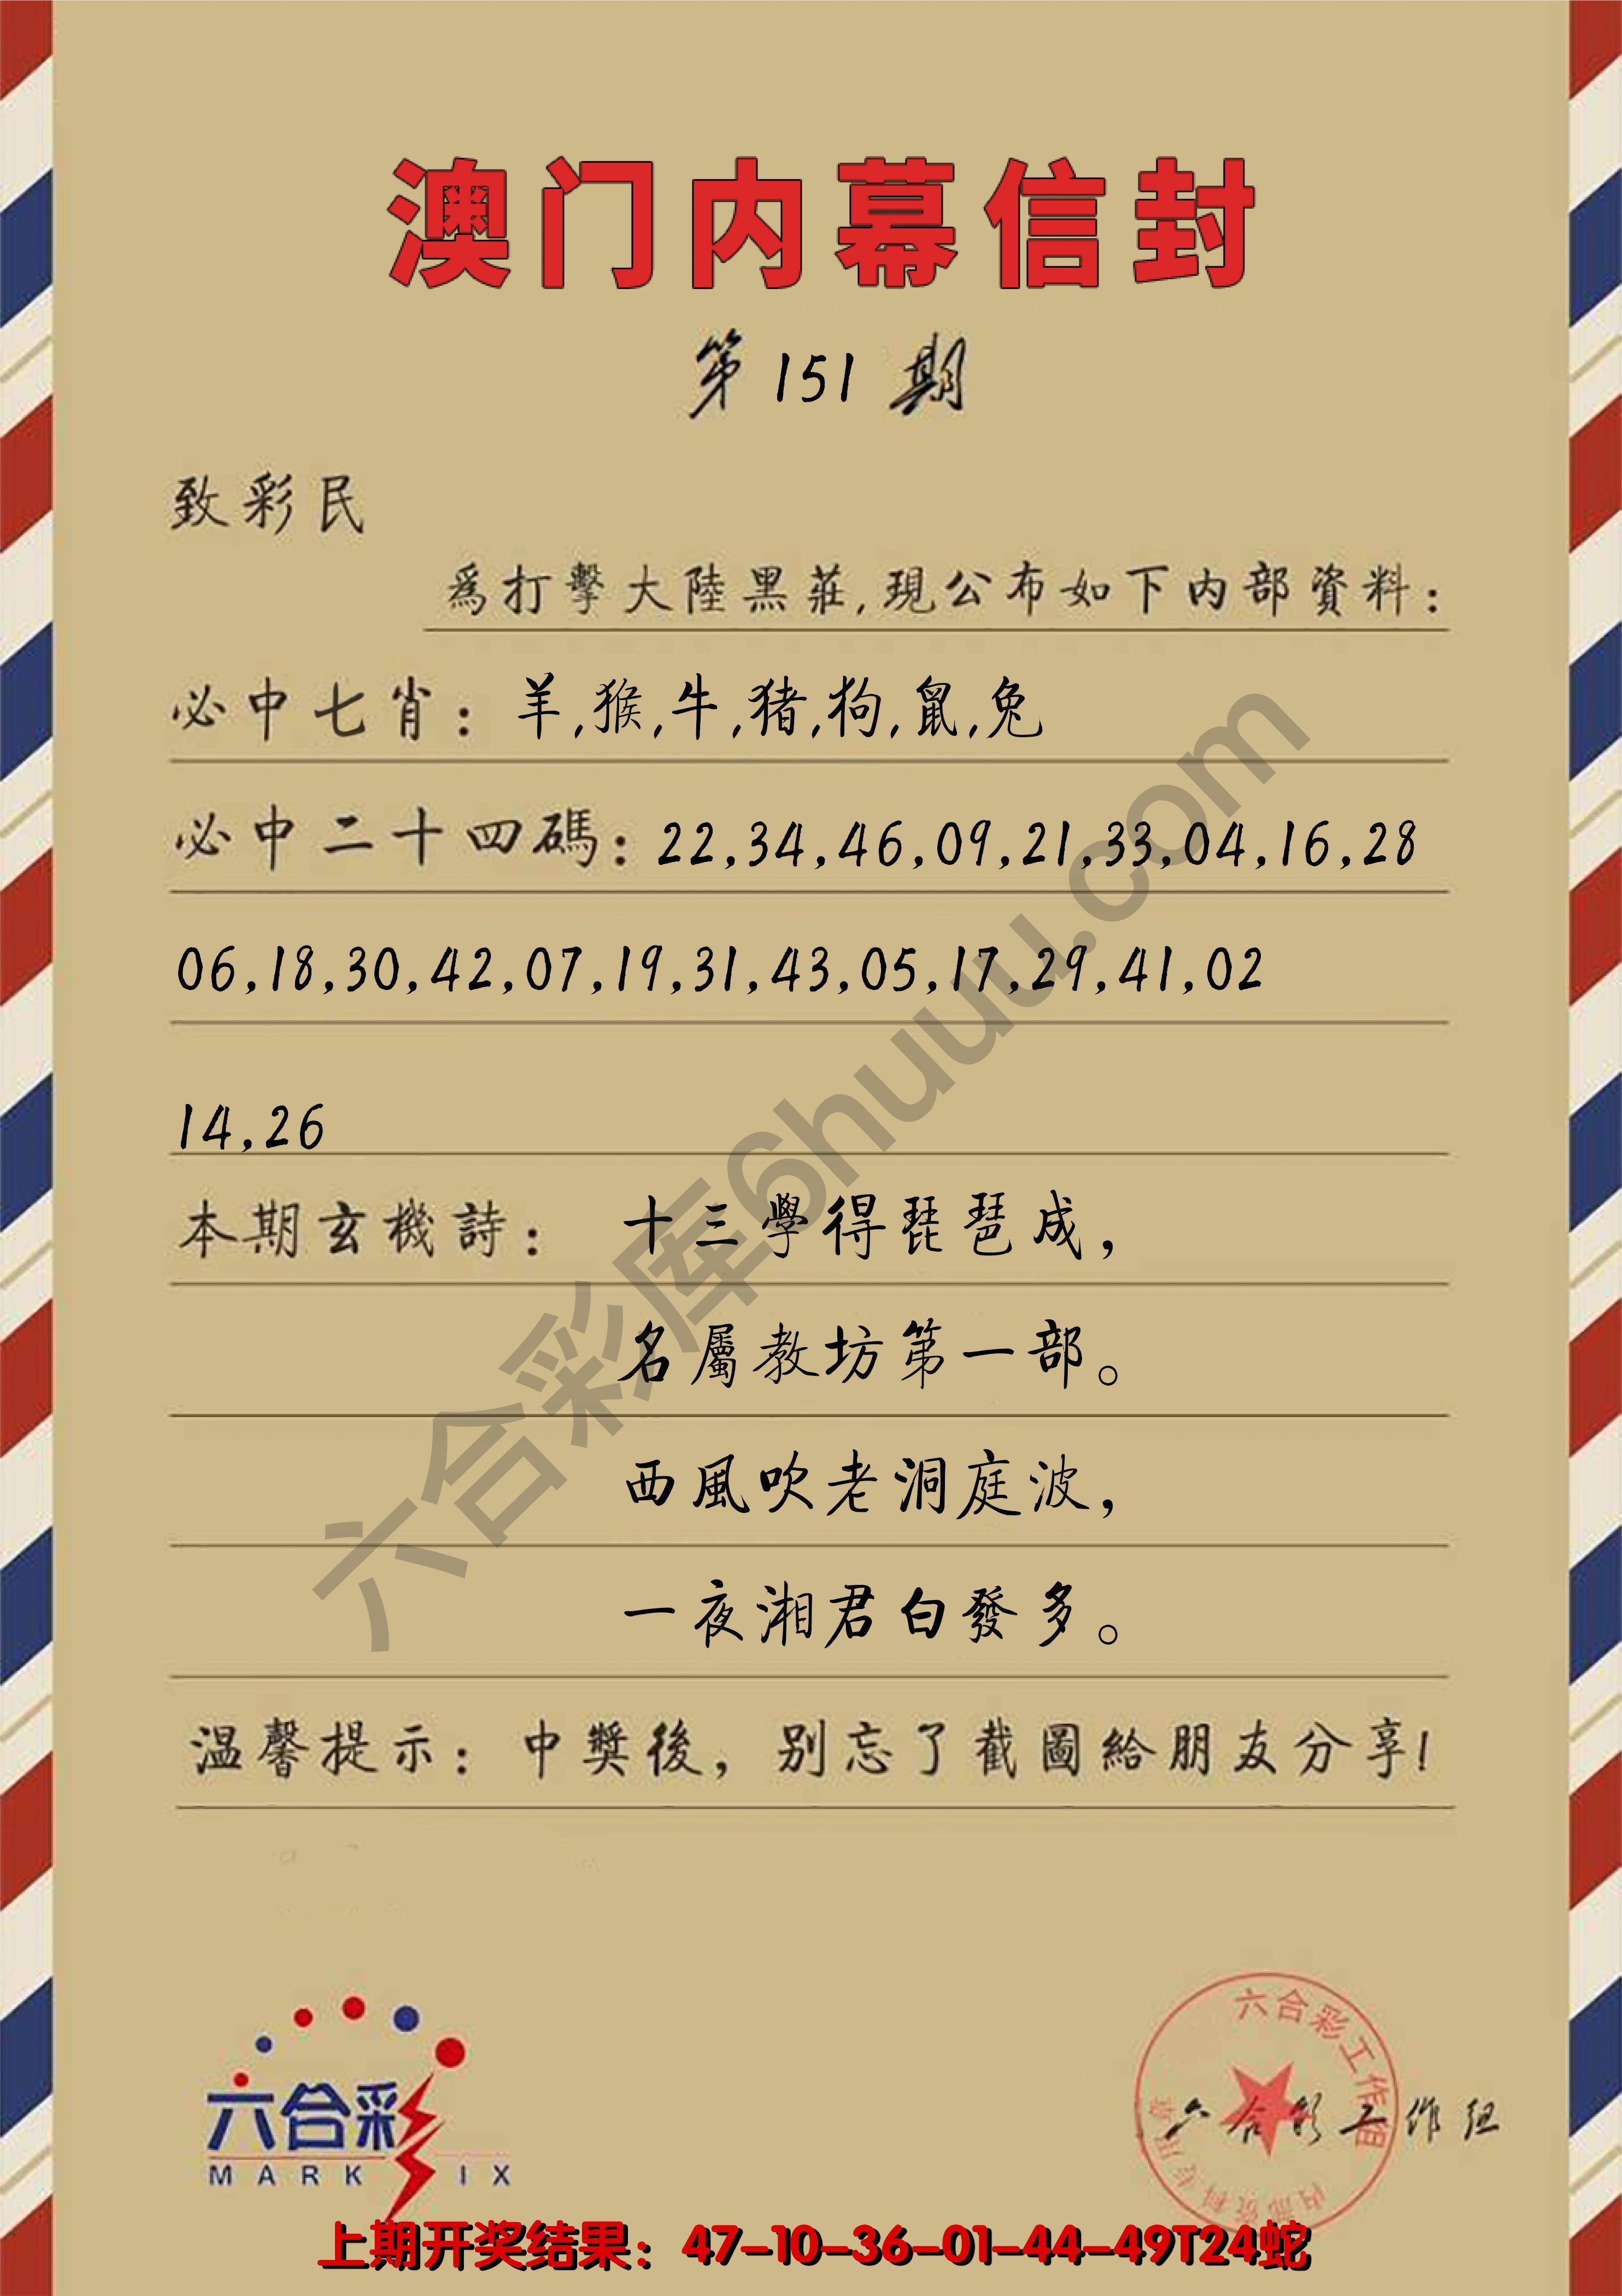 澳门内幕信封
第151期
致彩民
爲打擊大陸黑莊,現公布如下内部資料:
必中七肖: 羊,猴,牛,猪,狗,鼠,兔
必中二十四碼: 22,34,46,09,21,33,04,16,28
06,18,30,42,07,19,31,43,05,17,29,41,02
14,26
本期玄機詩: 十三學得琵琶成,
名屬教坊第一部。
西風吹老洞庭波,
一夜湘君白發多。
温馨提示: 中獎後, 别忘了截圖給朋友分享!
六合彩库6huuu.com
六合彩
MARK SIX
六合彩工作组
内部资料专用章
六合彩工作组
上期开奖结果: 47-10-36-01-44-49T24蛇